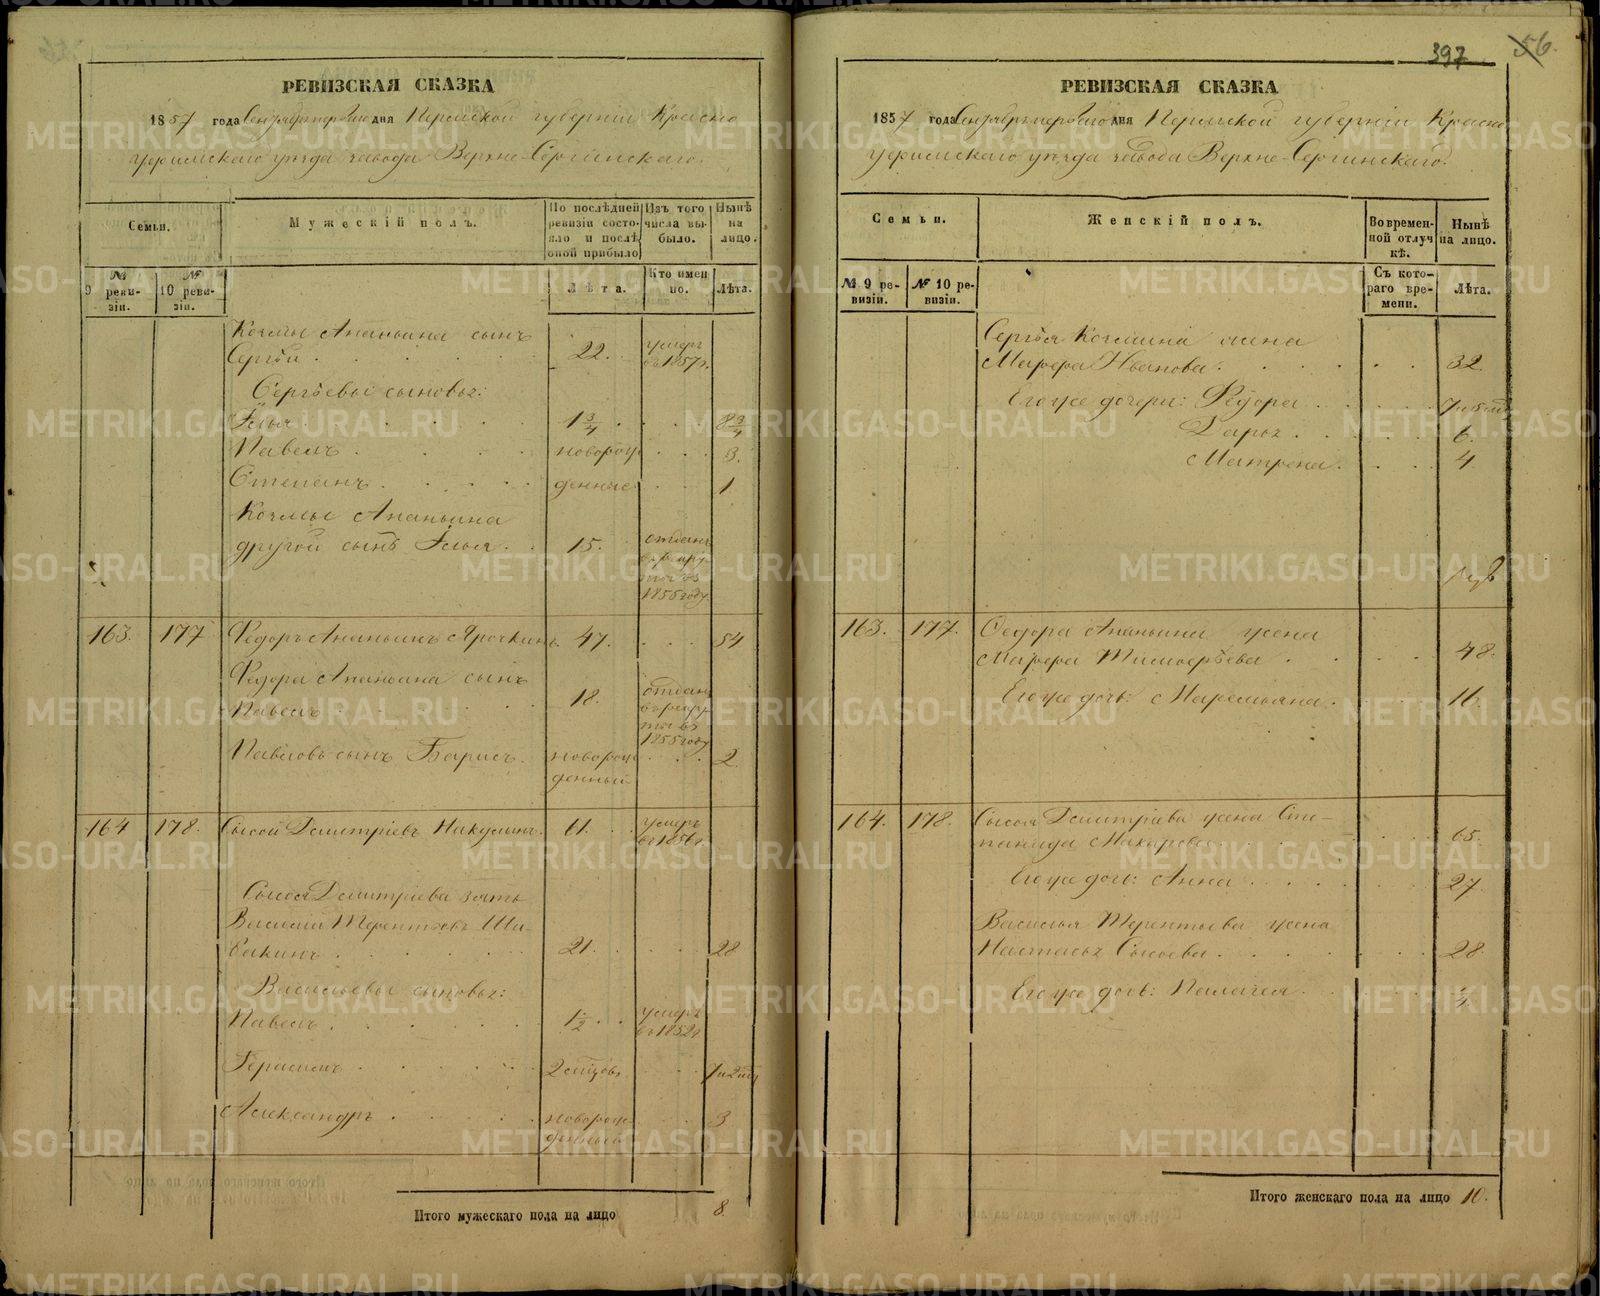 РЕВИЗСКАЯ СКАЗКА
1857 года Сентября первого дня Пермской губерніи Красно
уфимскаго уѣзда завода Верхне-Сергинскаго.
Семьи.
Мужескій полъ.
По послѣдней ревизіи состояло и послѣ оной прибыло
Изъ того числа выбыло.
Нынѣ на лицо.
№ 9 ревизіи.
№ 10 ревизіи.
Лѣта.
Кто именно.
Лѣта.
Козмы Ананьина сынъ
Сергѣй 22. умеръ въ 1857 г.
Сергѣевы сыновья:
Илья 1 3/4 8 3/4
Павелъ новорож 3.
Степанъ денные 1
Козмы Ананьина
другой сынъ Илья 15. отданъ въ рекруты въ 1855 году
163. 177 Федоръ Ананьинъ 47. 54
Федора Ананьина сынъ
Павелъ 18. отданъ въ рекруты въ 1855 году
Павловъ сынъ Борисъ новорожденный 2
164 178. Сысой Дмитріевъ Никулинъ 61. умеръ въ 1856 г.
Сысоя Дмитріева зять
Василій Терентьевъ Ши-
бакинъ 21. 28
Васильевы сыновья:
Павелъ 1/2 умеръ въ 1852 г
Герасимъ 2 мѣсяцовъ 7 и 2 мѣс
Александръ новорожденный 3
Итого мужескаго пола на лицо 8.
397
56.
РЕВИЗСКАЯ СКАЗКА
1857 года Сентября первого дня Пермской губерніи Красно
уфимскаго уѣзда завода Верхне-Сергинскаго.
Семьи.
Женскій полъ.
Во временной отлучкѣ.
Нынѣ на лицо.
№ 9 ревизіи.
№ 10 ревизіи.
Съ котораго времени.
Лѣта.
Сергѣя Козмина жена
Марфа Иванова 32.
Его же дочери: Федора 7 и 5 мѣс
Дарья 6.
Матрена 4
163. 177. Федора Ананьина жена
Марфа Тимофеева 48.
Его же дочь: Маремьяна 16.
164. 178. Сысоя Дмитріева жена Сте-
панида Макарова 65.
Его же дочь: Анна 27
Василья Терентьева жена
Настасья Сысоева 28.
Его же дочь: Палагея
Итого женскаго пола на лицо 10.
METRIKI.GASO-URAL.RU